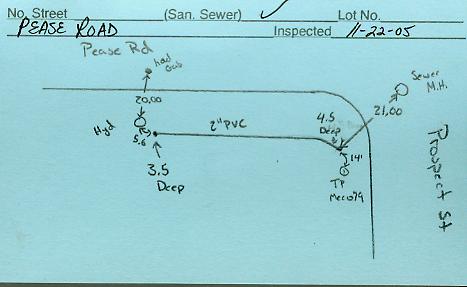 No. Street (San. Sewer) Lot No.
PEASE ROAD Inspected 11-22-05
Pease Rd
had
Gas
Sewer
M.H.
20.00
21.00
Hyd
5.6
2" PVC
4.5
Deep
3.5
Deep
14'
TP
Prospect St